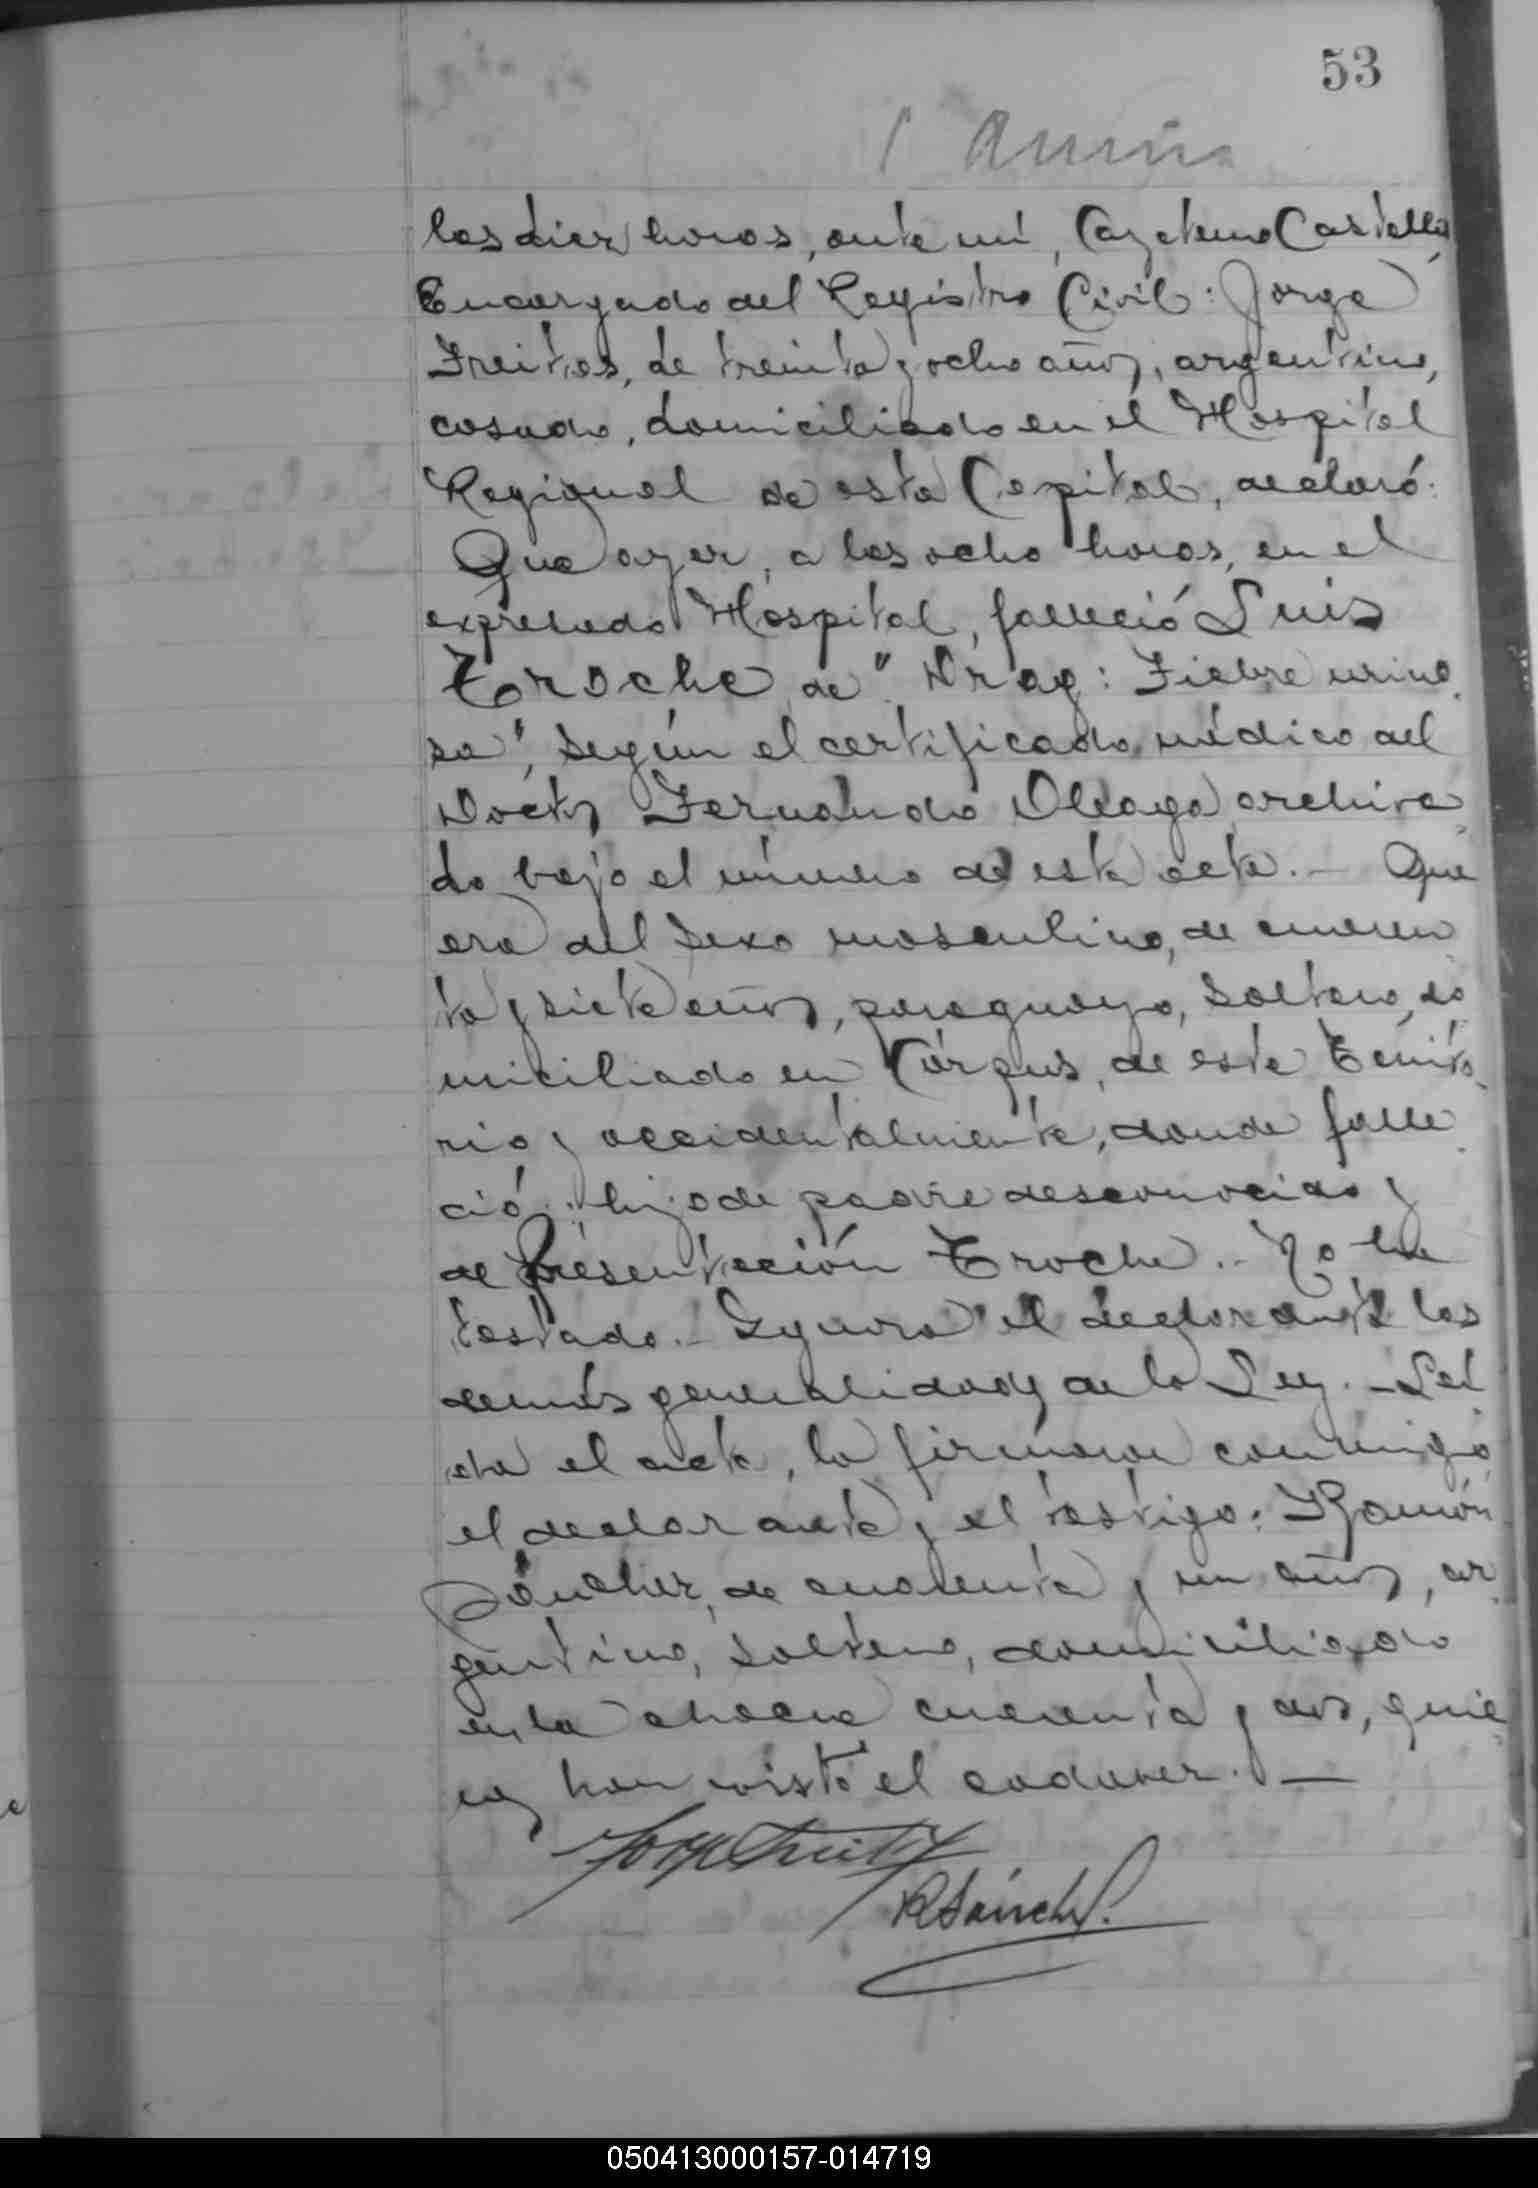 53
las diez horas, ante mí, Cayetano Castelli,
Encargado del Registro Civil: Jorge
Freites, de treinta y ocho años, argentino,
casado, domiciliado en el Hospital
Regional de esta Capital, declaró:
Que ayer, a las ocho horas, en el
expresado Hospital, falleció Luis
Troche de "Drag: Fiebre urino
sa", según el certificado médico del
Doctor Fernando Oleaga archiva
do bajo el número de esta acta. — Que
era del sexo masculino, de cuaren
ta y siete años, paraguayo, soltero, do
miciliado en Córpus, de este Territo
rio y accidentalmente, donde falle
ció; hijo de padre desconocido y
de Presentación Troche. - No ha
testado. - Ignora el declarante las
demás generalidades de la Ley. - Leí
da el acta, la firmaron conmigo
el declarante y el testigo: Ramón
Sánchez, de cuarenta y un años, ar
gentino, soltero, domiciliado
en la chacra cuarenta y dos, quie
nes han visto el cadaver. —
Jorge Freites
R Sánchez.
050413000157-014719